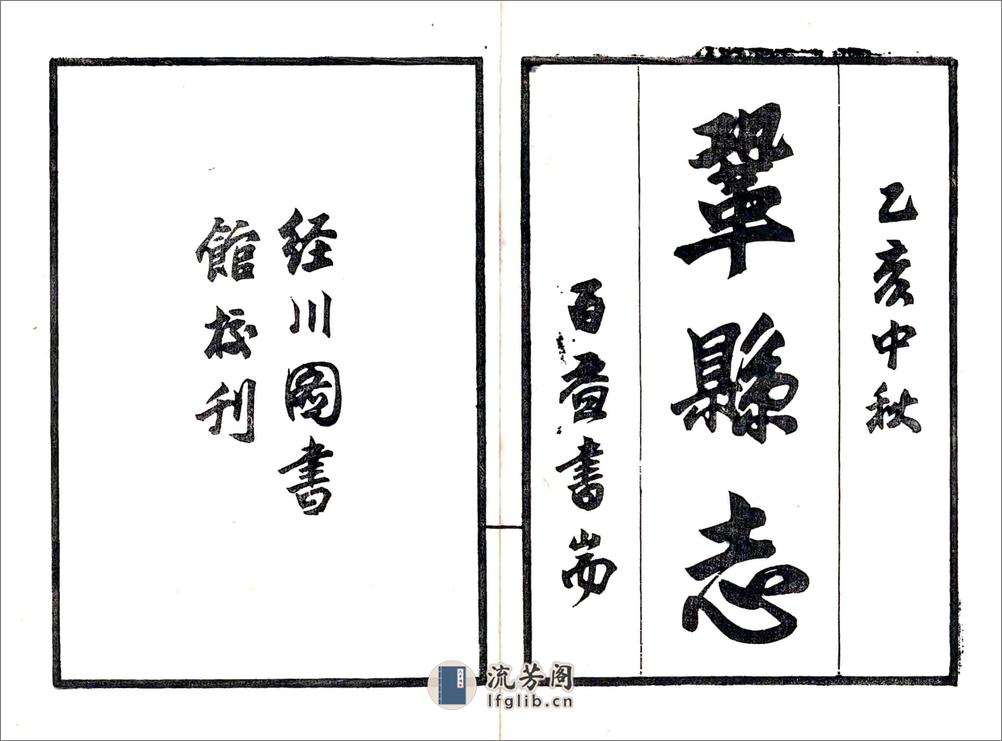 乙亥中秋
鞏縣志
百書耑
经川圖書
館校刊
流芳阁
lfglib.cn